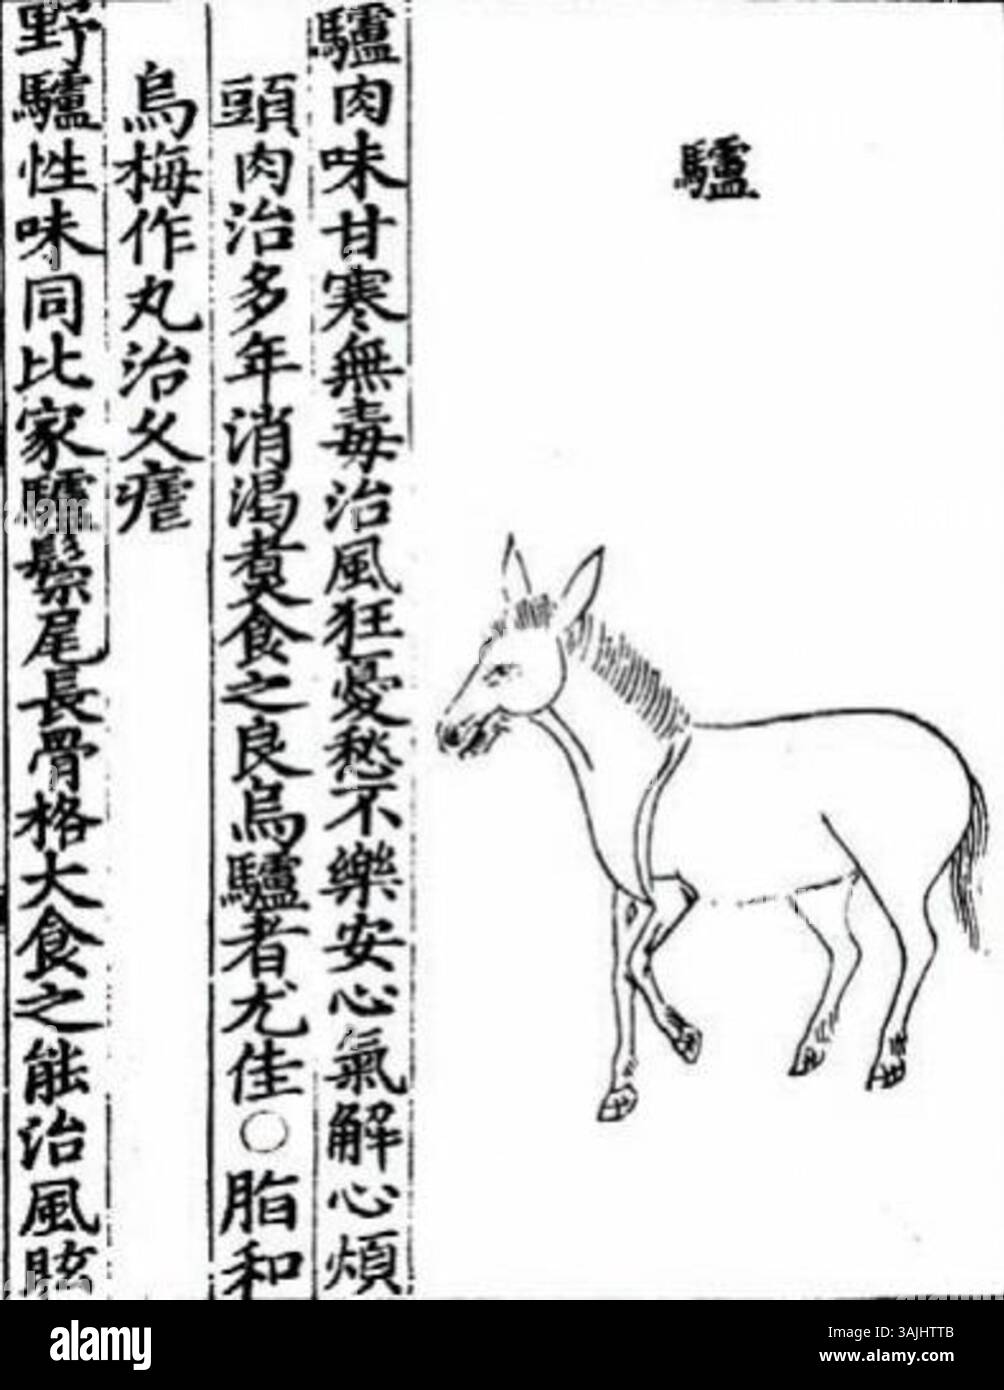 驢
驢肉味甘寒無毒治風狂憂愁不樂安心氣解心煩
頭肉治多年消渴煑食之良烏驢者尤佳○脂和
烏梅作丸治久瘧
野驢性味同比家驢鬃尾長骨格大食之能治風眩
alamy
Image ID: 3AJHTTB
www.alamy.com